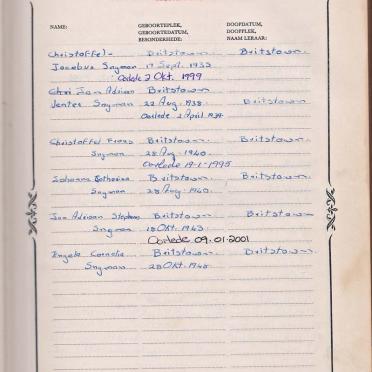 NAAM: GEBOORTEPLEK, DOOPDATUM,
GEBOORTEDATUM, DOOPPLEK,
BESONDERHEDE: NAAM LERAAR:
Christoffel- Britstown Britstown
Jacobus Snyman 17 Sept. 1935
Oorlede 2 Okt. 1999
Jan Adriaan Britstown
Venter Snyman 22 Aug. 1938 Britstown
Oorlede 2 April 1939
Christoffel Frans Britstown Britstown
Snyman 28 Aug. 1940
Oorlede 19-1-1995
Johanna Catharina Britstown Britstown
Snyman 28 Aug. 1940
Jan Adriaan Stephanus Britstown Britstown
Snyman 18 Okt. 1943
Oorlede 09.01.2001
Engela Cornelia Britstown Britstown
Snyman 28 Okt. 1948